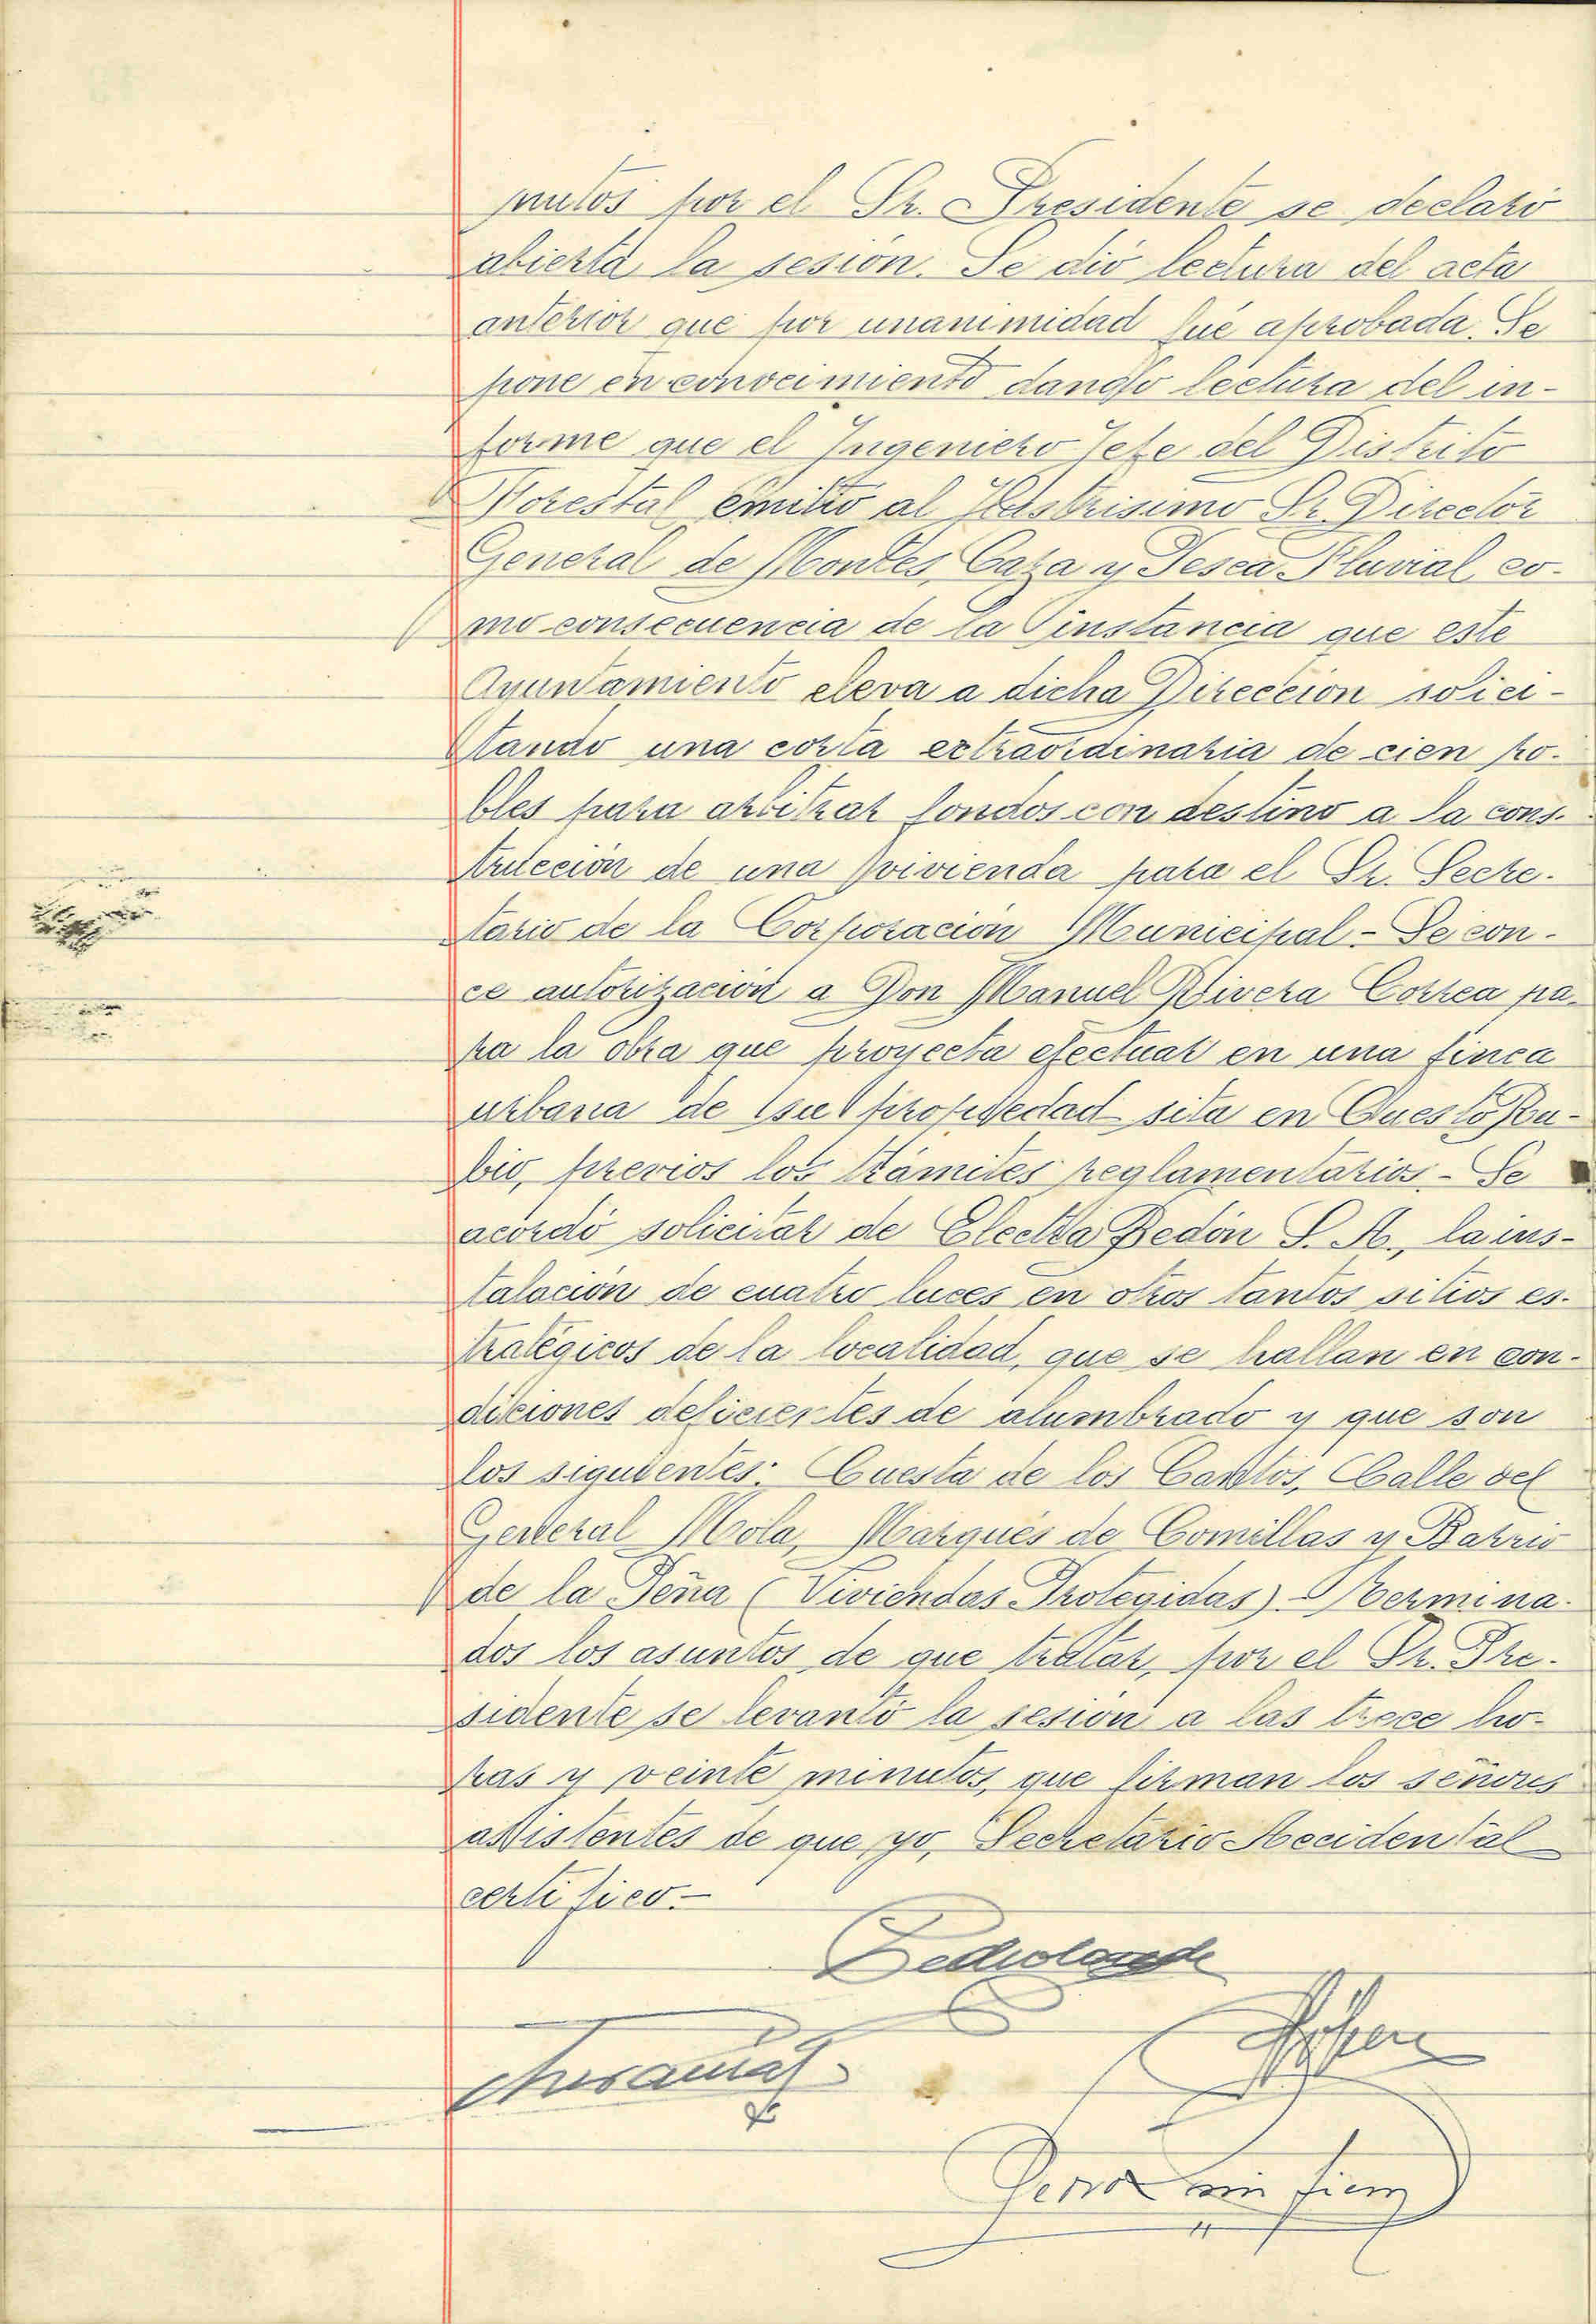 nutos por el Sr. Presidente se declaró
abierta la sesión. Se dió lectura del acta
anterior que por unanimidad fué aprobada. Se
pone en conocimiento dando lectura del in-
forme que el Ingeniero Jefe del Distrito
Forestal emitió al Ilustrisimo Sr. Director
General de Montes, Caza y Pesca Fluvial, co-
mo consecuencia de la instancia que este
Ayuntamiento eleva a dicha Dirección solici-
tando una corta extraordinaria de cien ro-
bles para arbitrar fondos con destino a la cons-
trucción de una vivienda para el Sr. Secre-
tario de la Corporación Municipal - Se con-
ce autorización a Don Manuel Rivera Correa pa-
ra la obra que proyecta efectuar en una finca
urbana de su propiedad sita en Questo Ru-
bio, previos los trámites reglamentarios. - Se
acordó solicitar de Electra Bedón S. A., la ins-
talación de cuatro luces en otros tantos sitios es-
tratégicos de la localidad, que se hallan en con-
diciones deficientes de alumbrado y que son
los siguientes: Cuesta de los Cantos, Calle del
General Mola, Marqués de Comillas y Barrio
de la Peña (Viviendas Protegidas). - Termina-
dos los asuntos de que tratar, por el Sr. Pre-
sidente se levantó la sesión a las trece ho-
ras y veinte minutos, que firman los señores
asistentes de que yo, Secretario Accidental
certifico. -